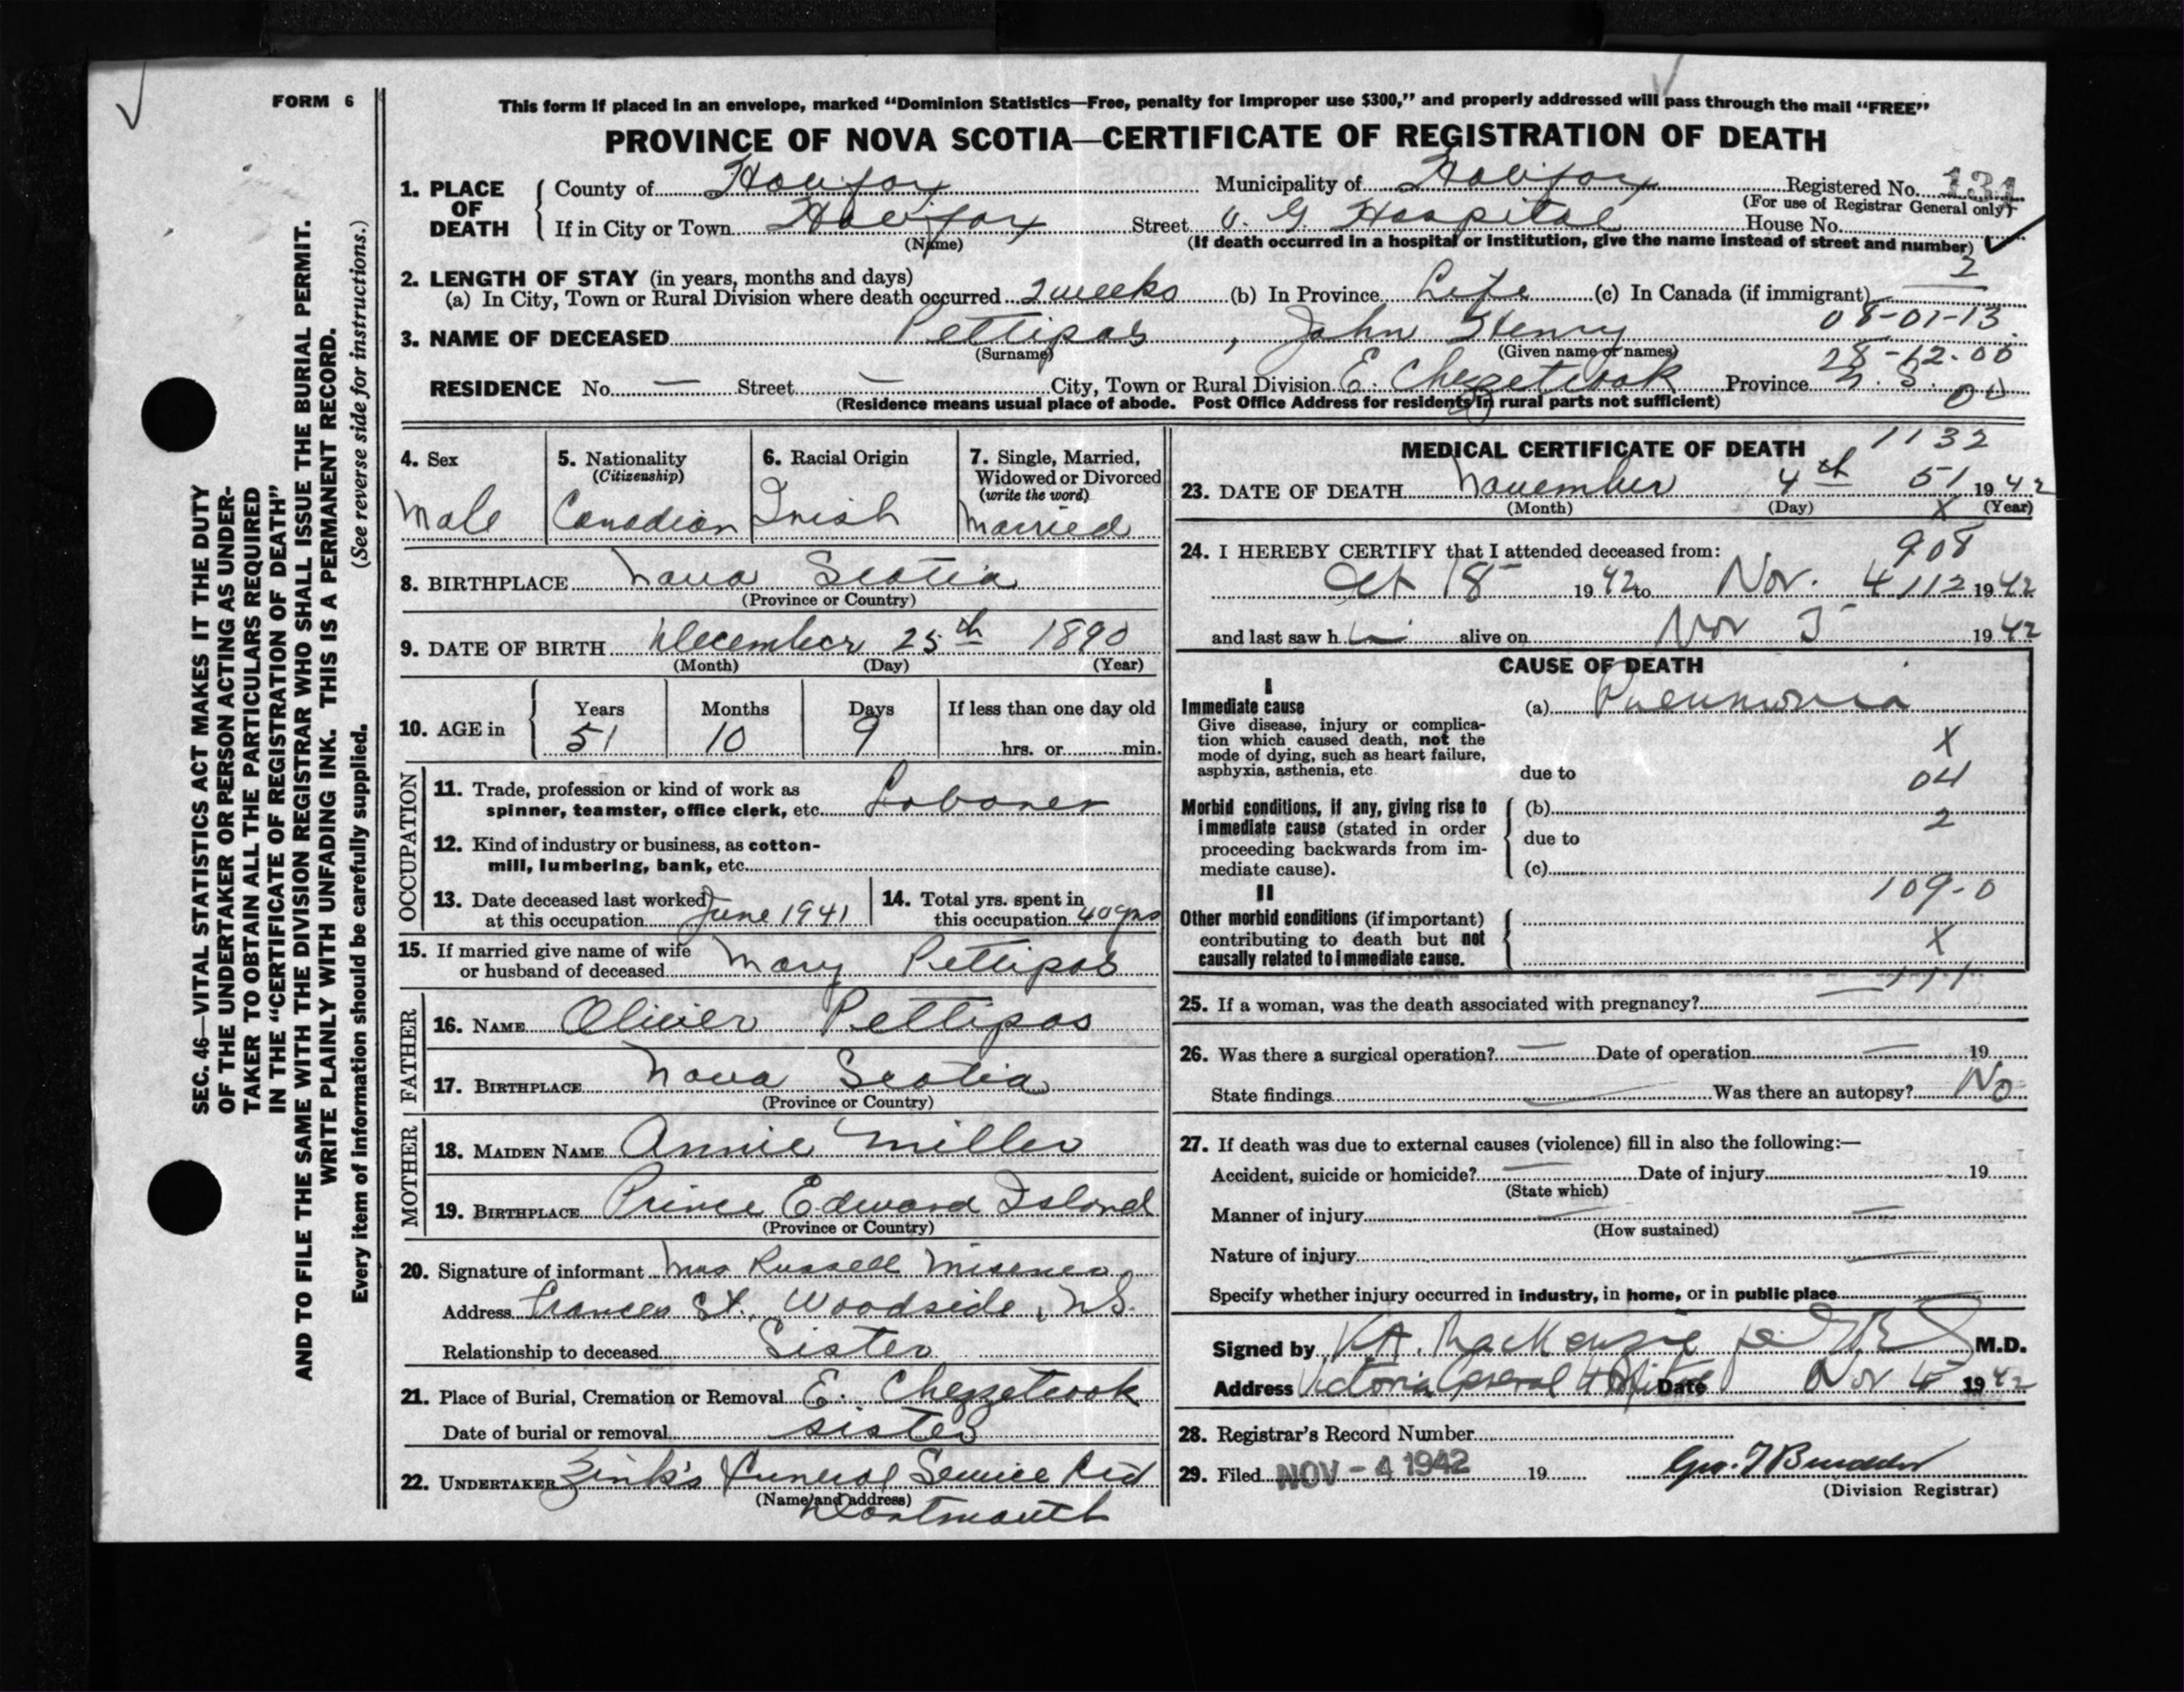 FORM 6
This form if placed in an envelope, marked “Dominion Statistics—Free, penalty for improper use $300,” and properly addressed will pass through the mail “FREE”
PROVINCE OF NOVA SCOTIA—CERTIFICATE OF REGISTRATION OF DEATH
SEC. 46—VITAL STATISTICS ACT MAKES IT THE DUTY
OF THE UNDERTAKER OR PERSON ACTING AS UNDER-
TAKER TO OBTAIN ALL THE PARTICULARS REQUIRED
IN THE “CERTIFICATE OF REGISTRATION OF DEATH”
AND TO FILE THE SAME WITH THE DIVISION REGISTRAR WHO SHALL ISSUE THE BURIAL PERMIT.
WRITE PLAINLY WITH UNFADING INK. THIS IS A PERMANENT RECORD.
Every item of information should be carefully supplied. (See reverse side for instructions.)
1. PLACE OF DEATH County of Halifax Municipality of Halifax Registered No. 131
(For use of Registrar General only)
If in City or Town Halifax Street V. G. Hospital House No.
(Name) (If death occurred in a hospital or institution, give the name instead of street and number)
2
2. LENGTH OF STAY (in years, months and days)
(a) In City, Town or Rural Division where death occurred 2 weeks (b) In Province Life (c) In Canada (if immigrant)
08-01-13
3. NAME OF DECEASED Pettipas, John Henry
(Surname) (Given name or names)
28-12-00
RESIDENCE No. — Street — City, Town or Rural Division E. Chezzetcook Province N. S. 00
(Residence means usual place of abode. Post Office Address for residents in rural parts not sufficient)
4. Sex Male
5. Nationality (Citizenship) Canadian
6. Racial Origin Irish
7. Single, Married, Widowed or Divorced (write the word) Married
8. BIRTHPLACE Nova Scotia
(Province or Country)
9. DATE OF BIRTH December 25th 1890
(Month) (Day) (Year)
10. AGE in Years 51 Months 10 Days 9 If less than one day old hrs. or min.
OCCUPATION
11. Trade, profession or kind of work as
spinner, teamster, office clerk, etc. Laborer
12. Kind of industry or business, as cotton-
mill, lumbering, bank, etc.
13. Date deceased last worked
at this occupation June 1941
14. Total yrs. spent in
this occupation 40 yrs
15. If married give name of wife
or husband of deceased Mary Pettipas
FATHER
16. NAME Olivier Pettipas
17. BIRTHPLACE Nova Scotia
(Province or Country)
MOTHER
18. MAIDEN NAME Annie Miller
19. BIRTHPLACE Prince Edward Island
(Province or Country)
20. Signature of informant Mrs Russell Misener
Address Frances St. Woodside, N.S.
Relationship to deceased Sister
21. Place of Burial, Cremation or Removal E. Chezzetcook
Date of burial or removal sister
22. UNDERTAKER Zink's Funeral Service Ltd
(Name and address)
Dartmouth
MEDICAL CERTIFICATE OF DEATH 1132
23. DATE OF DEATH November 4th 51 1942
(Month) (Day) X (Year)
24. I HEREBY CERTIFY that I attended deceased from: 908
Oct 18 1942 to Nov. 4 112 1942
and last saw h im alive on Nov 3 1942
CAUSE OF DEATH
I
Immediate cause (a) Pneumonia
Give disease, injury or complica-
tion which caused death, not the
mode of dying, such as heart failure,
asphyxia, asthenia, etc.
X
due to 04
Morbid conditions, if any, giving rise to
immediate cause (stated in order
proceeding backwards from im-
mediate cause).
(b) 2
due to
(c)
II 109-0
Other morbid conditions (if important)
contributing to death but not
causally related to immediate cause.
X
25. If a woman, was the death associated with pregnancy? —
26. Was there a surgical operation? — Date of operation — 19
State findings — Was there an autopsy? No
27. If death was due to external causes (violence) fill in also the following:—
Accident, suicide or homicide? — Date of injury 19
(State which)
Manner of injury —
(How sustained)
Nature of injury —
Specify whether injury occurred in industry, in home, or in public place —
Signed by V.A. MacKenzie per M.D.
Address Victoria General Hospital Date Nov 4 1942
28. Registrar's Record Number
29. Filed NOV -4 1942 19
(Division Registrar)